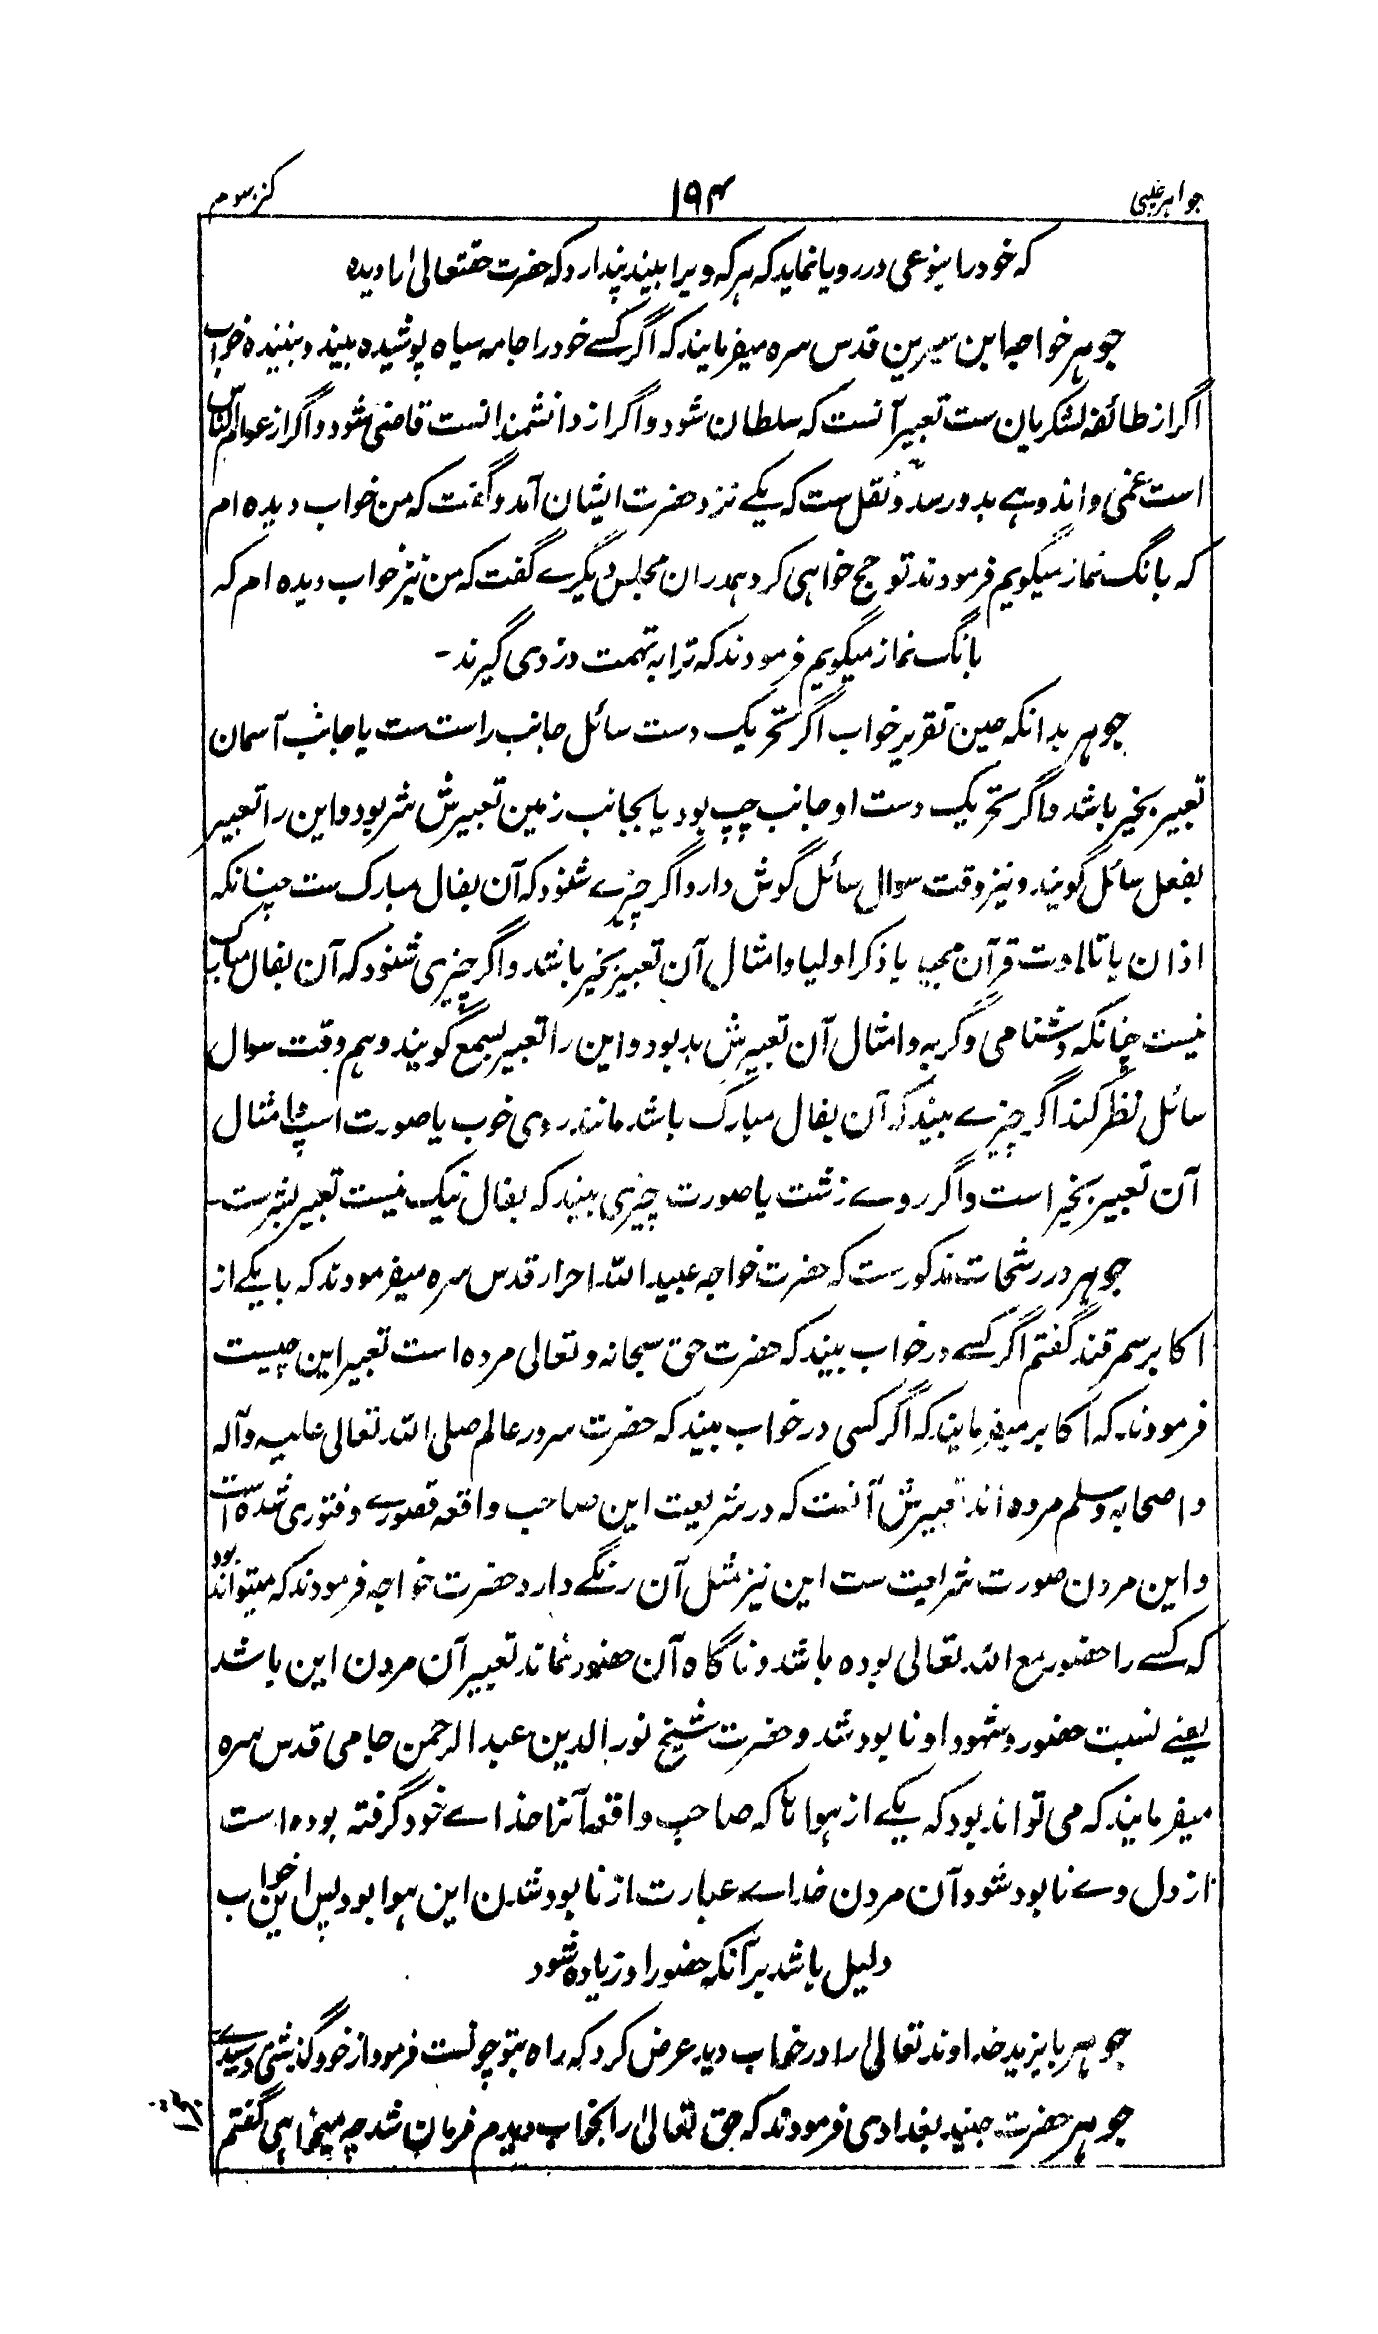 جواهر غیبی ۱۹۴ کنز سوم
که خود را بنوعی در رویا نماید که هر که ویرا بیند پندارد که حضرت حقتعالیٰ را دیده
جوهر خواجه ابن سیرین قدس سره میفرمایند که اگر کسے خود را جامه سیاه پوشیده بیند و بیننده خواب
اگر از طائفه لشکریان ست تعبیر آنست که سلطان شود و اگر از دانشمندانست قاضی شود و اگر از عوام الناس
است غمی و اندوهے بدو رسد و نقل ست که یکے نزد حضرت ایشان آمد و گفت که من خواب دیده ام
که بانگ نماز میگویم فرمودند تو حج خواهی کرد همدران مجلس دیگرے گفت که من نیز خواب دیده ام که
بانگ نماز میگویم فرمودند که ترا به تهمت دزدی گیرند -
جوهر بدانکه حین تقریر خواب اگر تحریک دست سائل جانب راست ست یا جانب آسمان
تعبیر بخیر باشد و اگر تحریک دست او جانب چپ بود یا بجانب زمین تعبیرش شر بود و این را تعبیر
بفعل سائل گویند و نیز وقت سوال سائل گوش دارد اگر چیزے شنود که آن بفال مبارک ست چنانکه
اذان یا تلاوت قرآن مجید یا ذکر اولیا و امثال آن تعبیر بخیر باشد و اگر چیزی شنود که آن بفال مبارک
نیست چنانکه دشنامی و گریه و امثال آن تعبیرش بد بود و این را تعبیر بسمع گویند و هم وقت سوال
سائل نظر کند اگر چیزے بیند که آن بفال مبارک باشد مانند روی خوب یا صورت اسپ و امثال
آن تعبیر بخیر است و اگر روے زشت یا صورت چیزی بیند که بفال نیک نیست تعبیر بشر ست
جوهر در رشحات مذکور ست که حضرت خواجه عبید الله احرار قدس سره میفرمودند که با یکے از
اکابر سمرقند گفتم اگر کسے در خواب بیند که حضرت حق سبحانه و تعالی مرده است تعبیر این چیست
فرمودند که اکابر میفرمایند که اگر کسی در خواب بیند که حضرت سرور عالم صلی الله تعالی علیه و آله
و اصحابه وسلم مرده اند تعبیرش آنست که در شریعت این صاحب واقعه قصورے و فتوری شده است
و این مردن صورت شریعت ست این نیز مثل آن رنگے دارد حضرت خواجه فرمودند که میتواند بود
که کسے را حضور مع الله تعالی بوده باشد و ناگاه آن حضور نماند تعبیر آن مردن این باشد
یعنے نسبت حضور و شهود او نابود شد و حضرت شیخ نور الدین عبد الرحمن جامی قدس سره
میفرمایند که می تواند بود که یکے از هواها که صاحب واقعه آنرا خداے خود گرفته بوده است
از دل وے نابود شود آن مردن خداے عبارت از نابود شدن این هوا بود پس این خواب
دلیل باشد بر آنکه حضور او زیاده شود
جوهر بایزید خداوند تعالیٰ را در خواب دید عرض کرد که راه بتو چونست فرمود از خود گذشتی و رسیدے
جوهر حضرت جنید بغدادی فرمودند که حق تعالیٰ را بخواب دیدم فرمان شد چه میخواهی گفتم